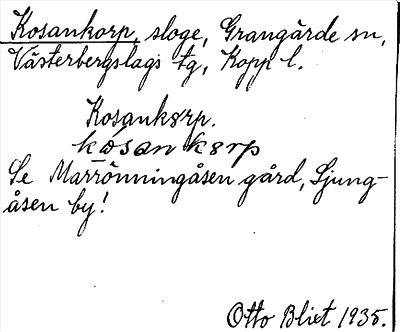 Kosankorp, sloge, Grangärde sn,
Västerbergslags tg, Kopp l.
Kosank8rp.
kósan k8rp
Se Marrönningåsen gård, Ljung-
åsen by!
Otto Blixt 1935.